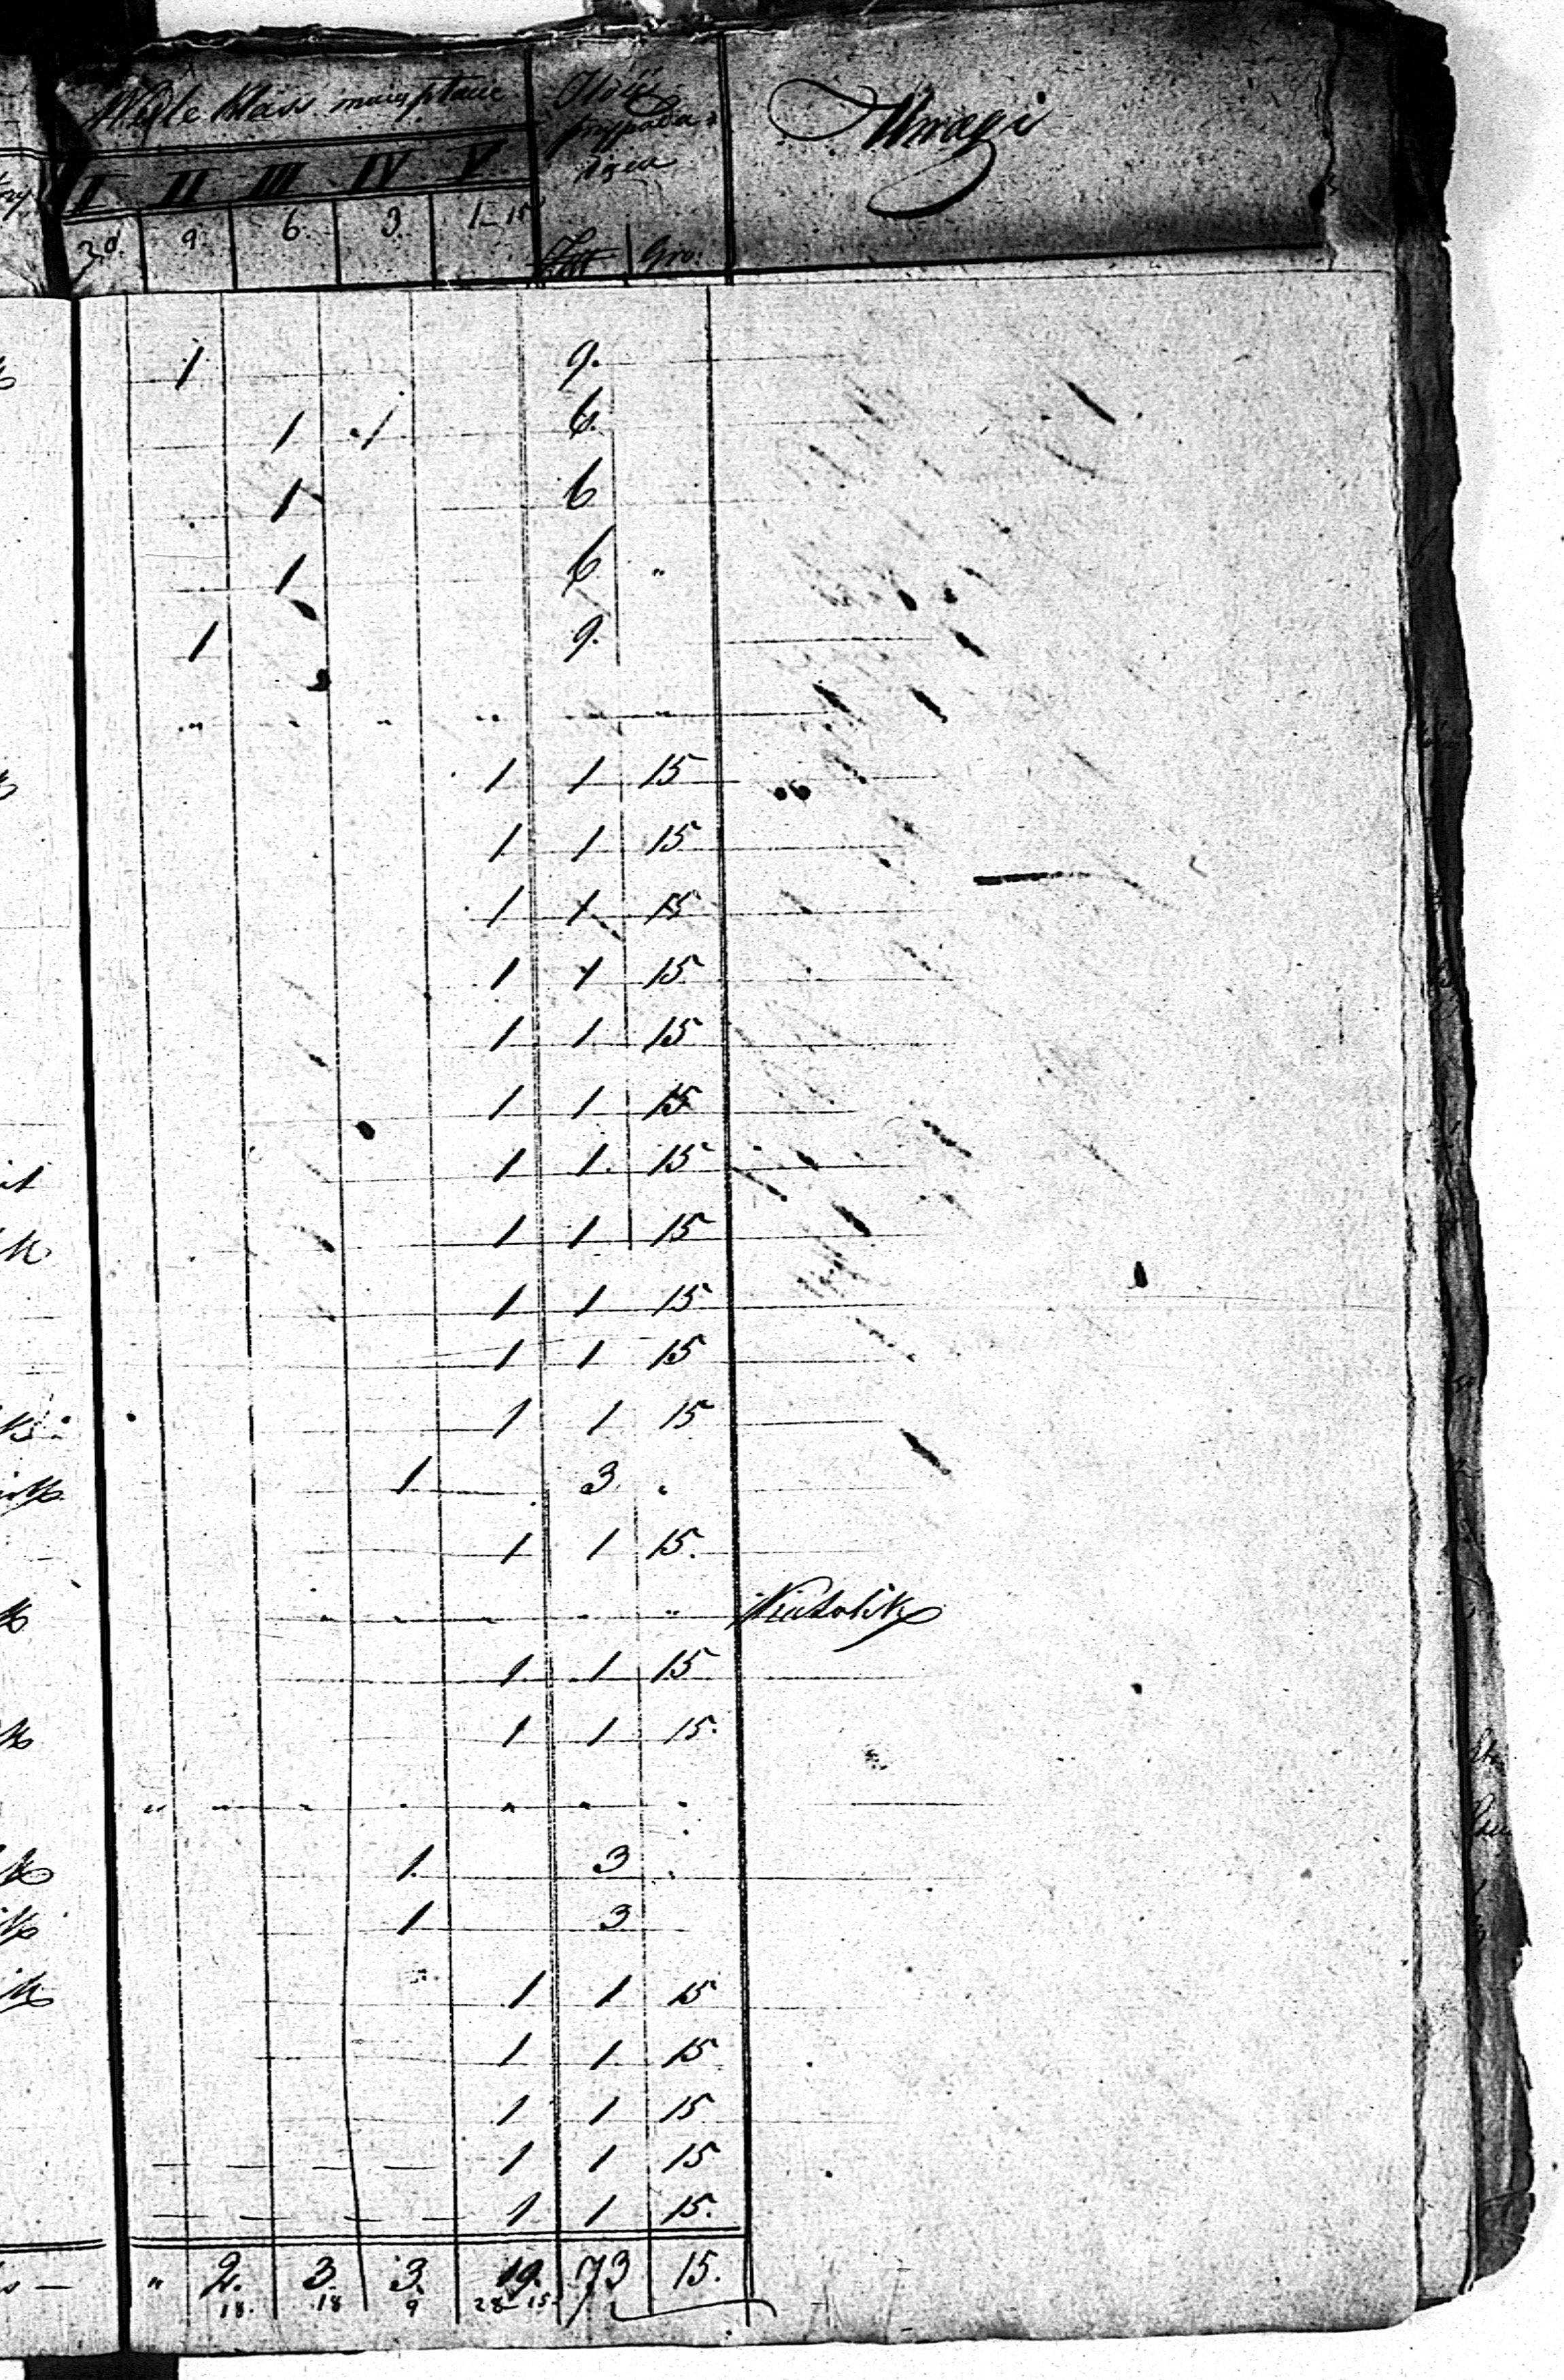 Wedle klass mają płacić
Ilość
przypada-
jąca
Uwagi
I II III IV V
9. 6. 3. 1-15
Gro:
1 9.
1 1 6.
1 6
1 6 "
1 9.
" " " " " "
1 1 15
1 1 15
1 1 15
1 1 15
1 1 15
1 1 15
1 1 15
1 1 15
1 1 15
1 1 15
1 1 15
1 3 .
1 1 15.
" " " " "
1 1 15
1 1 15.
" " " " " " "
1 3 .
1 3
1 1 15
1 1 15
1 1 15
1 1 15
1 1 15.
" 2. 3. 3. 19. 73 15.
18. 18 9 28 15